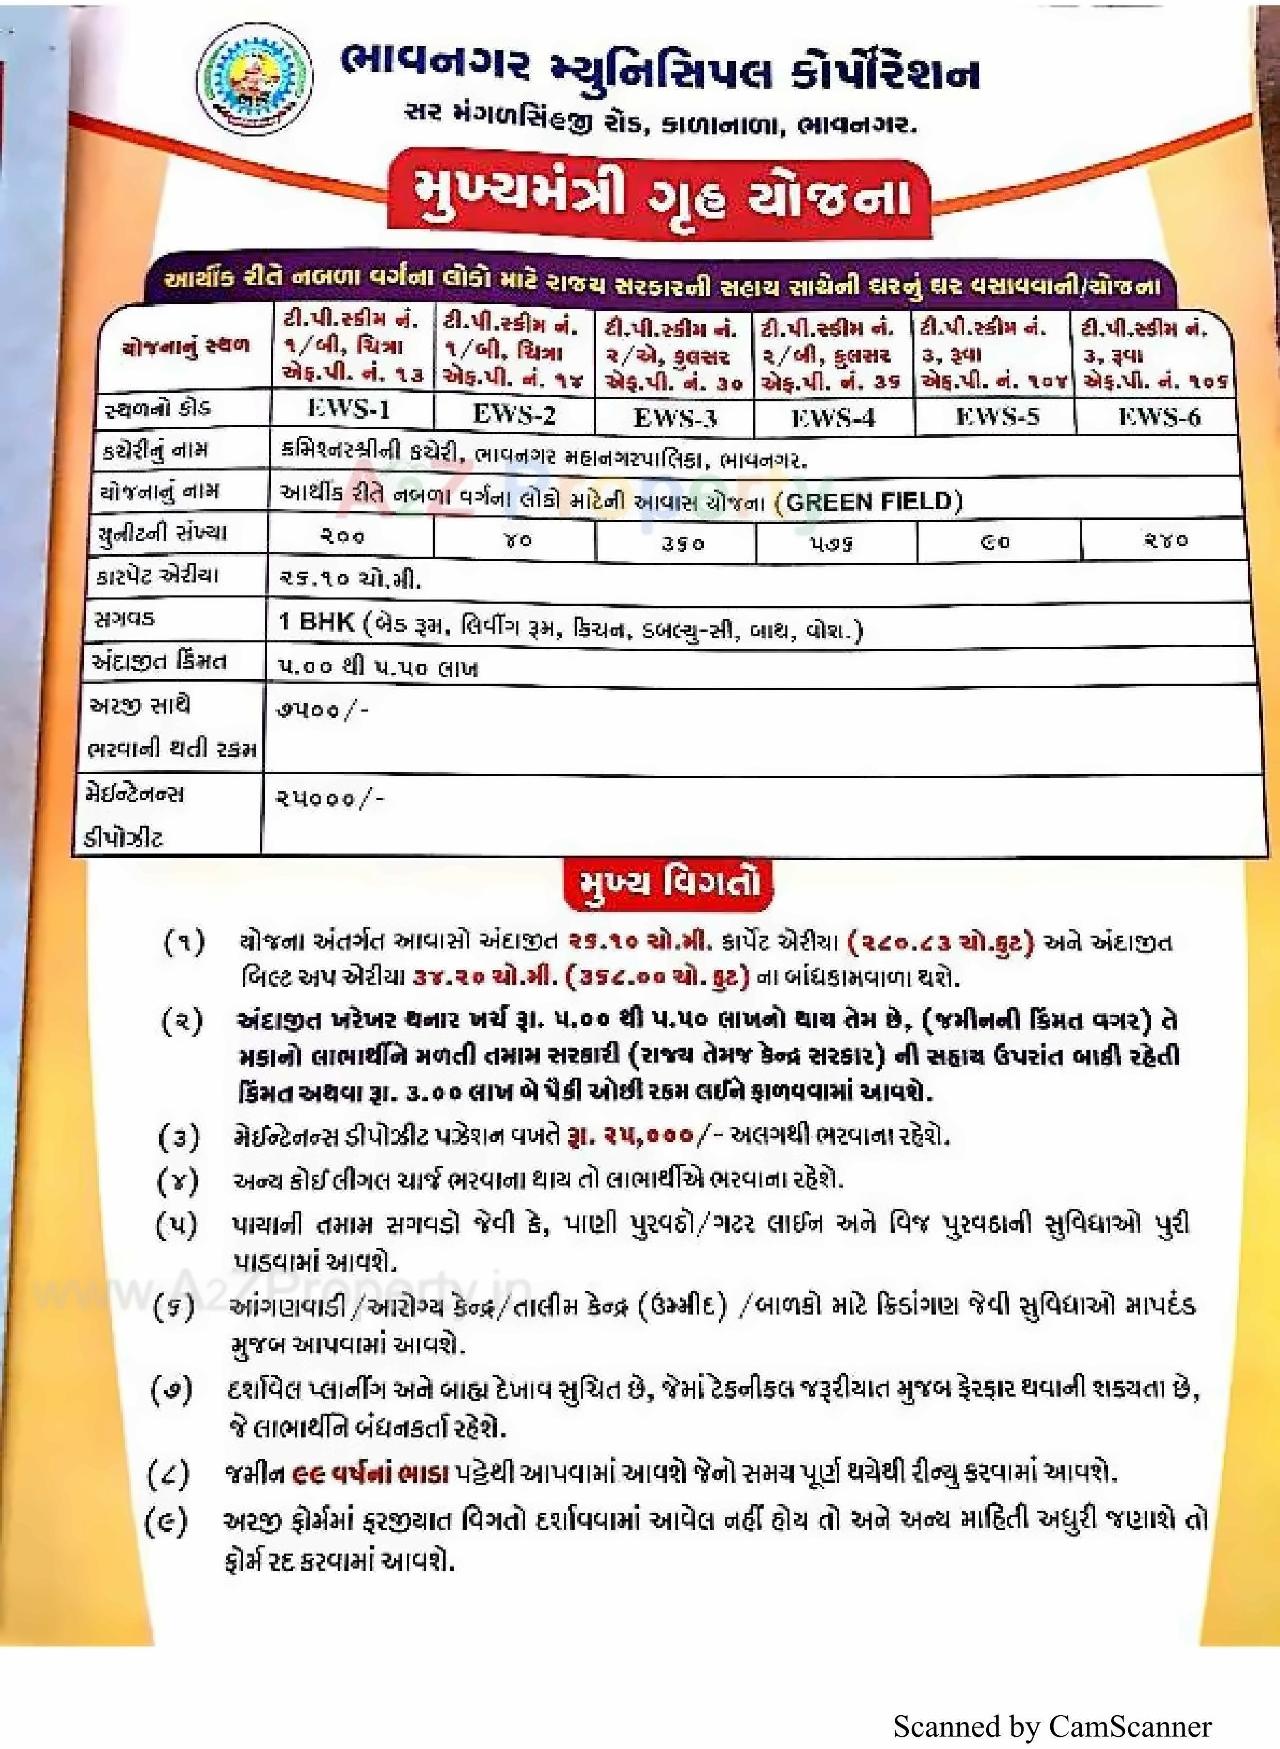 ભાવનગર મ્યુનિસિપલ કોર્પોરેશન
સર મંગળસિંહજી રોડ, કાળાનાળા, ભાવનગર.
મુખ્યમંત્રી ગૃહ યોજના
આર્થીક રીતે નબળા વર્ગના લોકો માટે રાજય સરકારની સહાય સાથેની ઘરનું ઘર વસાવવાની/યોજના
યોજનાનું સ્થળ ટી.પી.સ્કીમ નં. ૧/બી, ચિત્રા એફ.પી. નં. ૧૩ ટી.પી.સ્કીમ નં. ૧/બી, ચિત્રા એફ.પી. નં. ૧૪ ટી.પી.સ્કીમ નં. ૨/એ, ફુલસર એફ.પી. નં. ૩૦ ટી.પી.સ્કીમ નં. ૨/બી, ફુલસર એફ.પી. નં. ૩૬ ટી.પી.સ્કીમ નં. ૩, રૂવા એફ.પી. નં. ૧૦૪ ટી.પી.સ્કીમ નં. ૩, રૂવા એફ.પી. નં. ૧૦૬
સ્થળનો કોડ EWS-1 EWS-2 EWS-3 EWS-4 EWS-5 EWS-6
કચેરીનું નામ કમિશ્નરશ્રીની કચેરી, ભાવનગર મહાનગરપાલિકા, ભાવનગર.
યોજનાનું નામ આર્થીક રીતે નબળા વર્ગના લોકો માટેની આવાસ યોજના (GREEN FIELD)
યુનીટની સંખ્યા ૨૦૦ ૪૦ ૩૬૦ ૫૭૬ ૯૦ ૨૪૦
કારપેટ એરીયા ૨૬.૧૦ ચો.મી.
સગવડ 1 BHK (બેડ રૂમ, લિવીંગ રૂમ, કિચન, ડબલ્યુ-સી, બાથ, વોશ.)
અંદાજીત કિંમત ૫.૦૦ થી ૫.૫૦ લાખ
અરજી સાથે
ભરવાની થતી રકમ ૭૫૦૦/-
મેઈન્ટેનન્સ
ડીપોઝીટ ૨૫૦૦૦/-
A2Z Property
મુખ્ય વિગતો
(૧) યોજના અંતર્ગત આવાસો અંદાજીત ૨૬.૧૦ ચો.મી. કાર્પેટ એરીયા (૨૮૦.૮૩ ચો.ફુટ) અને અંદાજીત
બિલ્ટ અપ એરીયા ૩૪.૨૦ ચો.મી. (૩૬૮.૦૦ ચો. ફુટ) ના બાંધકામવાળા થશે.
(૨) અંદાજીત ખરેખર થનાર ખર્ચ રૂા. ૫.૦૦ થી ૫.૫૦ લાખનો થાય તેમ છે, (જમીનની કિંમત વગર) તે
મકાનો લાભાર્થીને મળતી તમામ સરકારી (રાજ્ય તેમજ કેન્દ્ર સરકાર) ની સહાય ઉપરાંત બાકી રહેતી
કિંમત અથવા રૂા. ૩.૦૦ લાખ બે પૈકી ઓછી રકમ લઈને ફાળવવામાં આવશે.
(૩) મેઈન્ટેનન્સ ડીપોઝીટ પઝેશન વખતે રૂા. ૨૫,૦૦૦/- અલગથી ભરવાના રહેશે.
(૪) અન્ય કોઈ લીગલ ચાર્જ ભરવાના થાય તો લાભાર્થીએ ભરવાના રહેશે.
(૫) પાયાની તમામ સગવડો જેવી કે, પાણી પુરવઠો/ગટર લાઈન અને વિજ પુરવઠાની સુવિધાઓ પુરી
પાડવામાં આવશે.
www.A2ZProperty.in
(૬) આંગણવાડી/આરોગ્ય કેન્દ્ર/તાલીમ કેન્દ્ર (ઉમ્મીદ) /બાળકો માટે ક્રિડાંગણ જેવી સુવિધાઓ માપદંડ
મુજબ આપવામાં આવશે.
(૭) દર્શાવેલ પ્લાનીંગ અને બાહ્ય દેખાવ સુચિત છે, જેમાં ટેકનીકલ જરૂરીયાત મુજબ ફેરફાર થવાની શક્યતા છે,
જે લાભાર્થીને બંધનકર્તા રહેશે.
(૮) જમીન ૯૯ વર્ષનાં ભાડા પટ્ટેથી આપવામાં આવશે જેનો સમય પૂર્ણ થયેથી રીન્યુ કરવામાં આવશે.
(૯) અરજી ફોર્મમાં ફરજીયાત વિગતો દર્શાવવામાં આવેલ નહીં હોય તો અને અન્ય માહિતી અધુરી જણાશે તો
ફોર્મ રદ કરવામાં આવશે.
Scanned by CamScanner